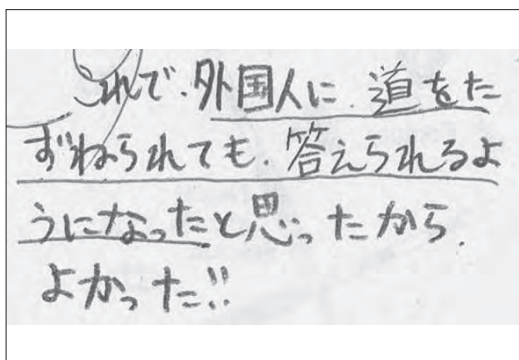 これで、外国人に、道をた
ずねられても、答えられるよ
うになったと思ったから、
よかった!!